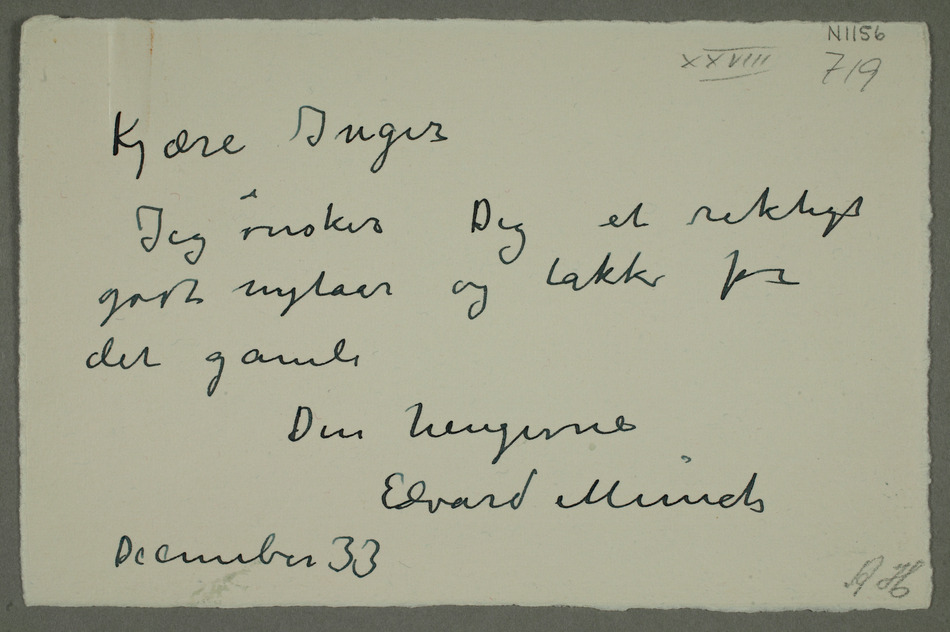 N1156
XXVIII 719
Kjære Inger
Jeg ønsker Dig et riktigt
godt nytaar og takke for
det gamle
Din hengivne
Edvard Munch
December 33